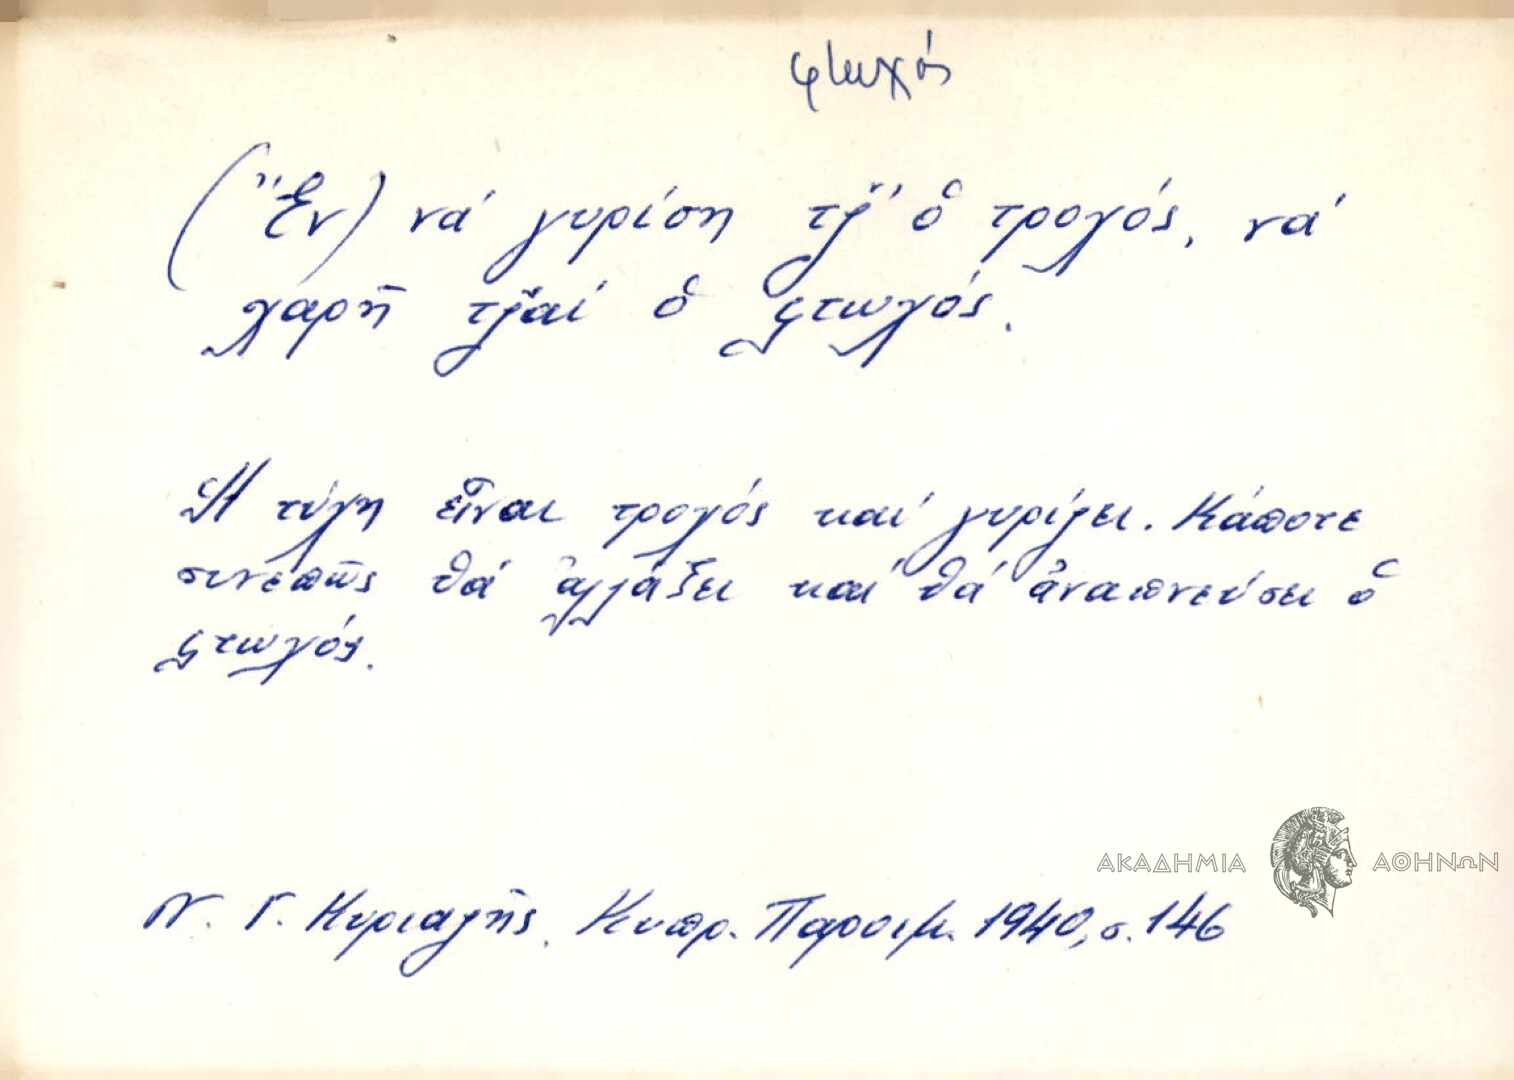 φτωχός
(Ἔν) νά γυρίση τζ̆' ὁ τροχός, νά
χαρῆ τζ̆αί ὁ φτωχός.
Ἡ τύχη εἶναι τροχός καί γυρίζει. Κάποτε
συνεπῶς θά ἀλλάξει καί θά ἀναπνεύσει ὁ
φτωχός.
Ν. Γ. Κυριαζῆς, Κυπρ. Παροιμ. 1940, σ. 146
ΑΚΑΔΗΜΙΑ ΑΘΗΝΩΝ